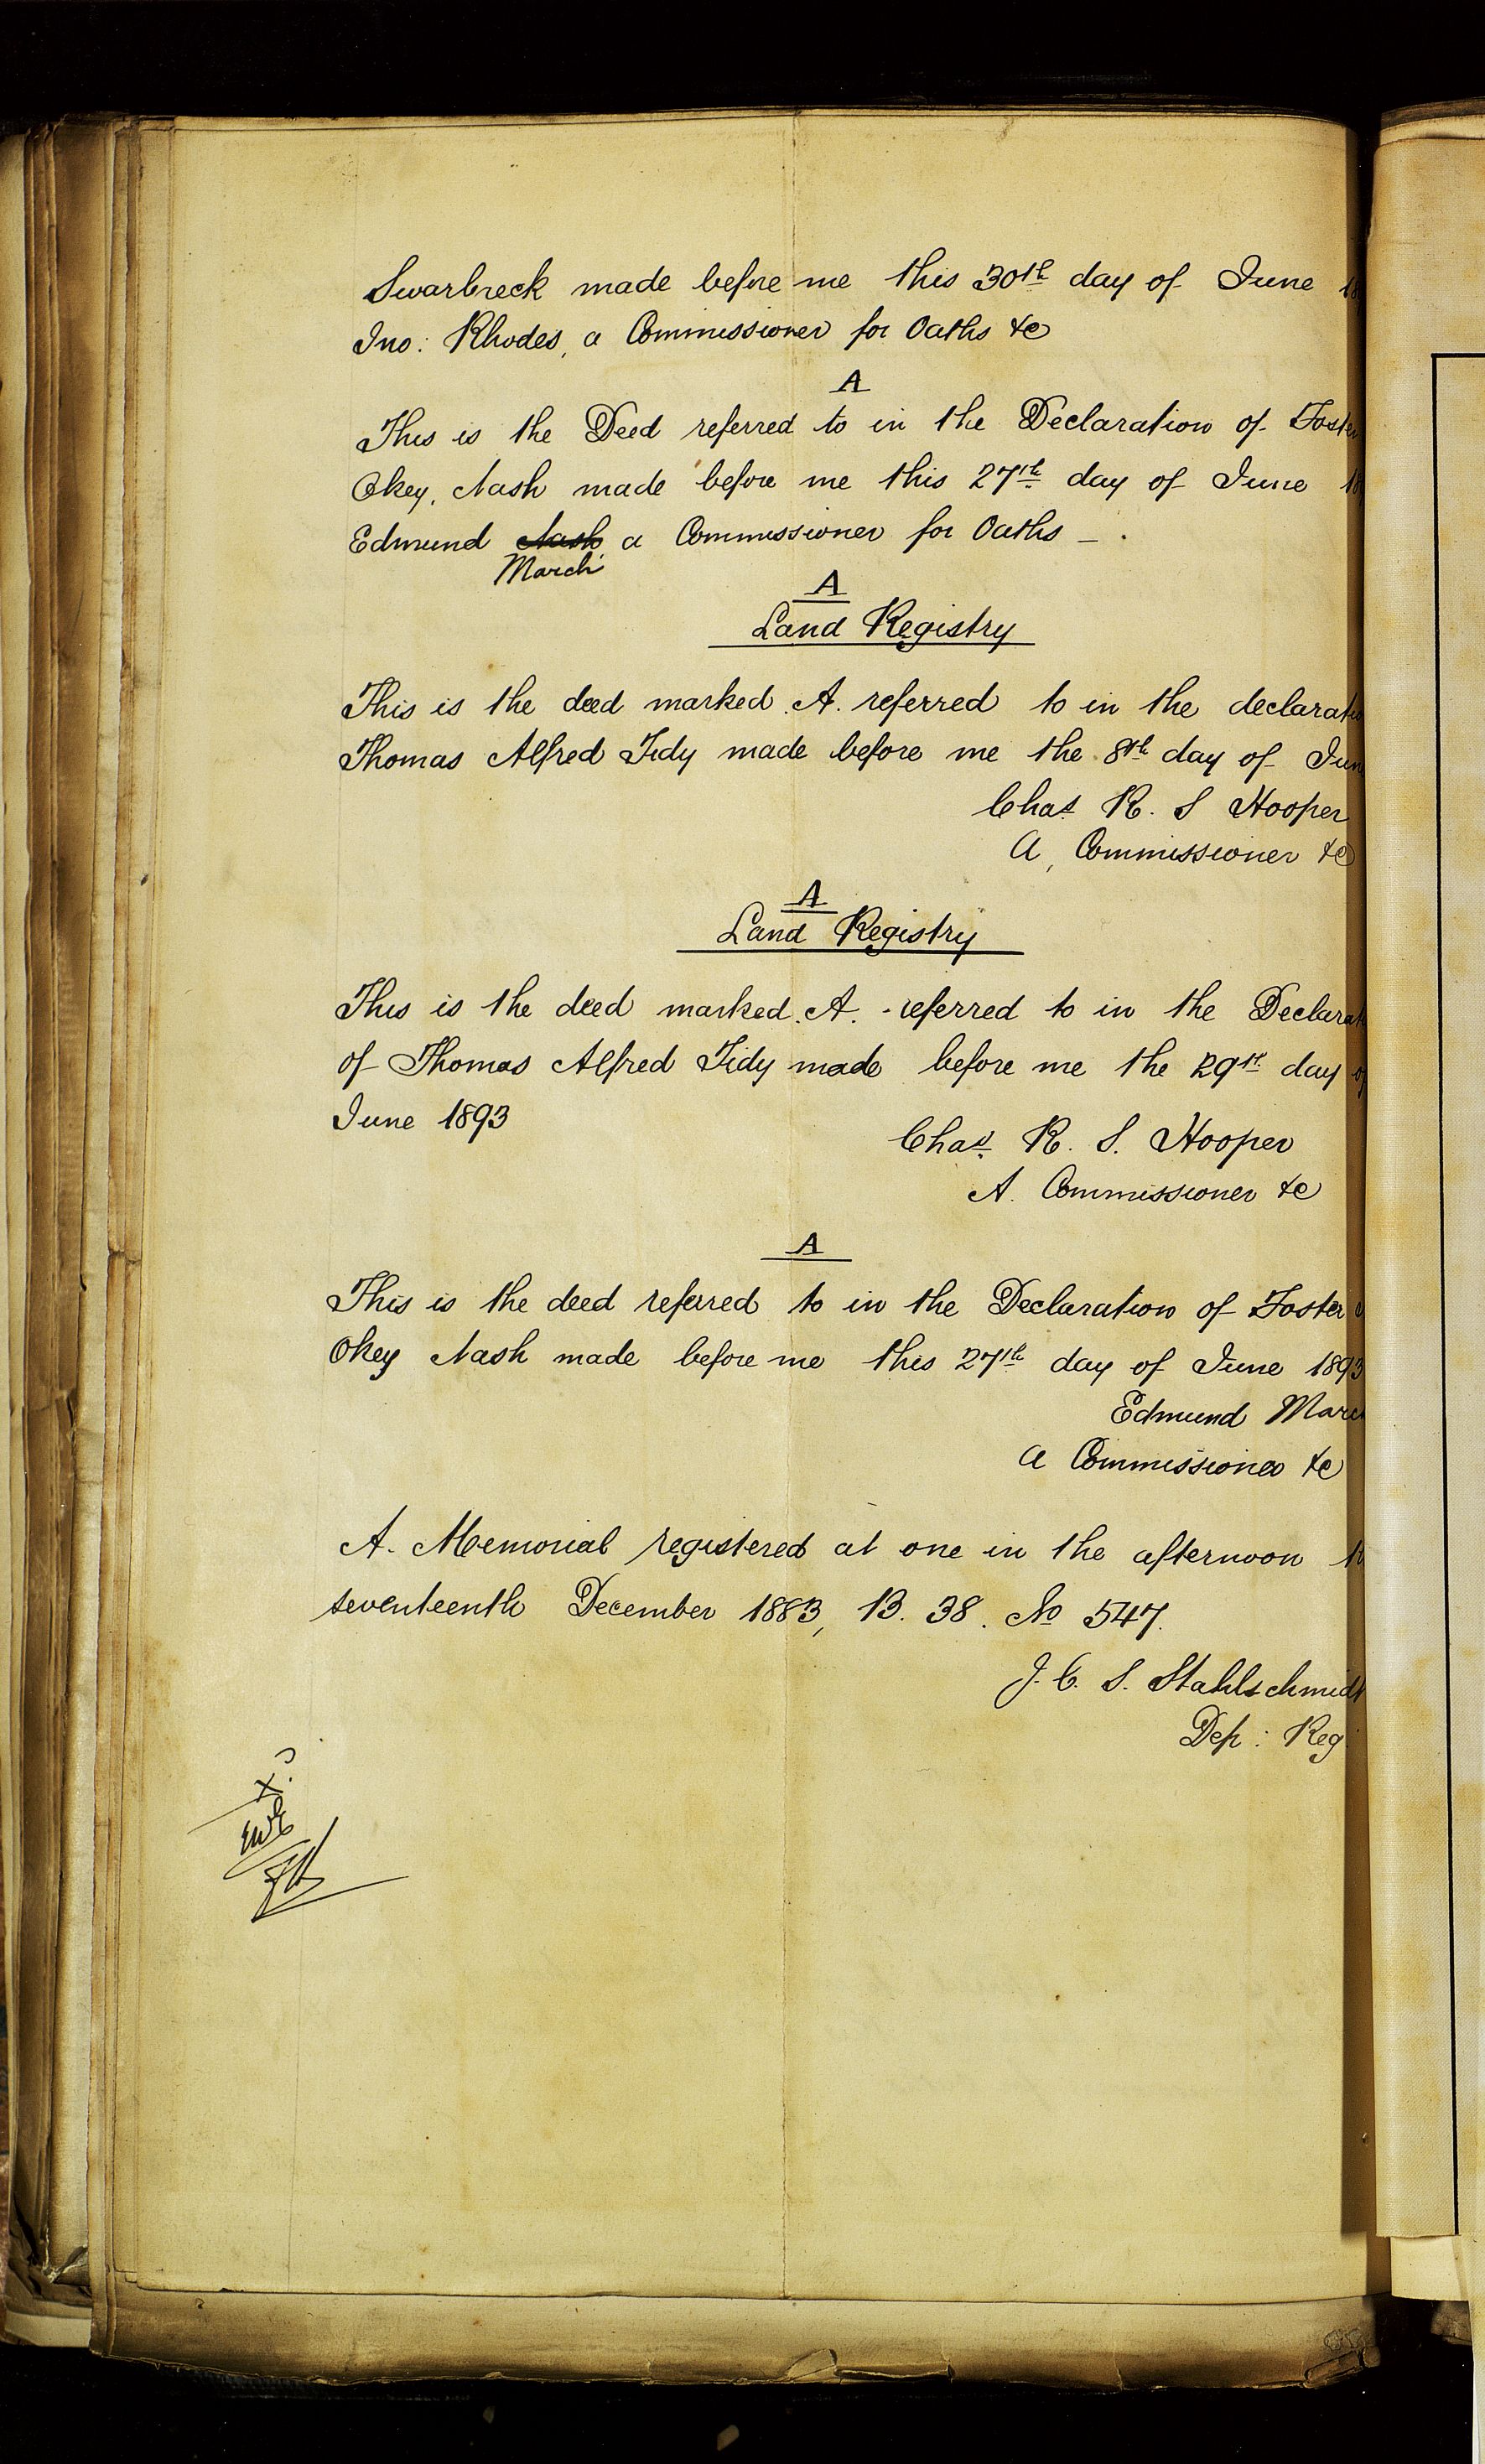 Swarbreck made before me this 30th day of June 18
Jno: Rhodes, a Commissioner for Oaths &c
A
This is the Deed referred to in the Declaration of Foster
Okey, Nash made before me this 27th day of June 18
Edmund Nash a Commissioner for Oaths _ .
March
A
Land Registry
This is the deed marked .A. referred to in the declaratio
Thomas Alfred Tidy made before me the 8th day of Jun
Chas R. S Hooper
A, Commissioner &c
A
Land Registry
This is the deed marked .A. - referred to in the Declarat
of Thomas Alfred Tidy made before me the 29th day of
June 1893
Chas R. S. Hooper
A. Commissioner &c
A
This is the deed referred to in the Declaration of Foster
Okey Nash made before me this 27th day of June 1893
Edmund Marc
a Commissioner &c
A. Memorial registered at one in the afternoon
seventeenth December 1883, B. 38. No 547.
J. C. S. Stahlschmidt
Dep: Reg